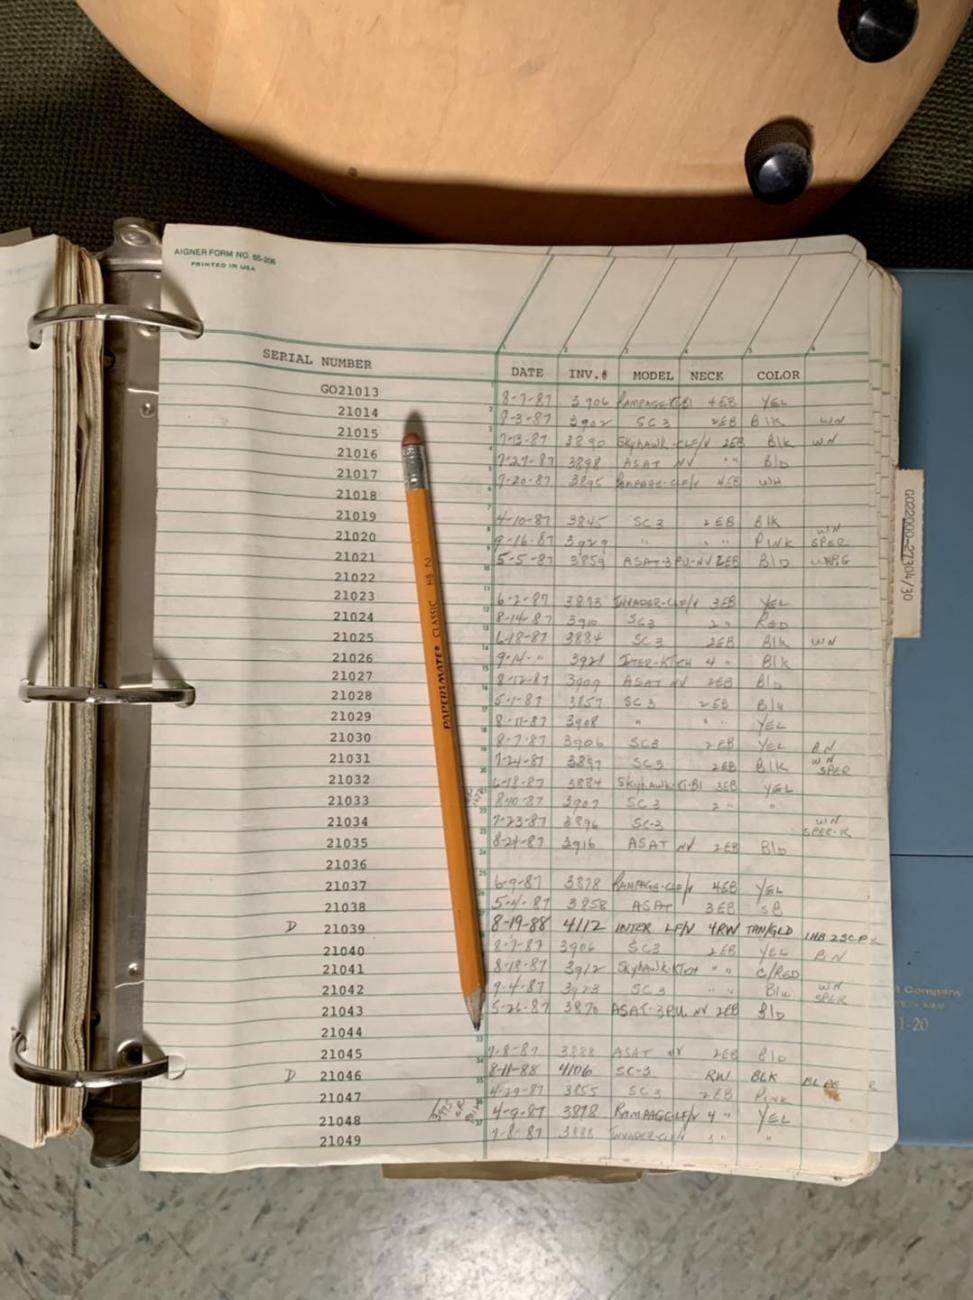 AIGNER FORM NO. 65-206
PRINTED IN USA
SERIAL NUMBER DATE INV.# MODEL NECK COLOR
GO21013 8-7-87 3906 RAMPAGE-KTBI 4EB YEL
21014 7-3-87 3902 SC3 2EB BLK WN
21015 7-13-87 3890 SKYHAWK-CLF/V 2EB BLK WN
21016 7-27-87 3898 ASAT NV " " BLD
21017 7-20-87 3895 RAMPAGE-CLF/V 4EB WH
21018
21019 4-10-87 3845 SC3 2EB BLK
21020 9-16-87 3929 " " " PINK WN SPER
21021 5-5-87 3859 ASAT-3PU-NV 2EB BLD
21022
21023 6-2-87 3873 INVADER-CLF/V 3EB YEL
21024 8-14-87 3910 SC3 2 " RED
21025 6-18-87 3884 SC3 2EB BLK WN
21026 9-14- " 3921 INTER-KTCH 4 " BLK
21027 8-12-87 3909 ASAT NV 2EB BLD
21028 5-1-87 3857 SC3 2EB BLU
21029 8-11-87 3908 " " " YEL
21030 8-7-87 3906 SC3 2EB YEL BN
21031 7-24-87 3897 SC3 2EB BLK WN SPER
21032 6-18-87 3884 SKYHAWK-KTBI 3EB YEL
21033 8-10-87 3907 SC3 2 " "
21034 7-23-87 3896 SC-3 WN SPER-R
21035 8-24-87 3916 ASAT NV 2EB BLD
21036
21037 6-9-87 3878 RAMPAGE-CLF/V 4EB YEL
21038 5-4-87 3858 ASAT 3EB SB
D 21039 8-19-88 4112 INTER LF/V 4RW TAN/GLD
21040 8-7-87 3906 SC3 2EB YEL BN
21041 8-18-87 3912 SKYHAWK-KTCH " " C/RED
21042 9-4-87 3923 SC3 " " BLU WN SPER
21043 5-26-87 3870 ASAT-3PU NV 2EB BLD
21044
21045 7-8-87 3888 ASAT NV 2EB BLD
D 21046 8-11-88 4106 SC-3 RW BLK
21047 4-29-87 3855 SC3 2EB PINK
21048 4-9-87 3878 RAMPAGE CLF/V 4 " YEL
21049 7-8-87 3888 INVADER-CLF/V 3 " "
PAPER:MATE CLASSIC HB 2
G022000-27304/30
Company
1-20